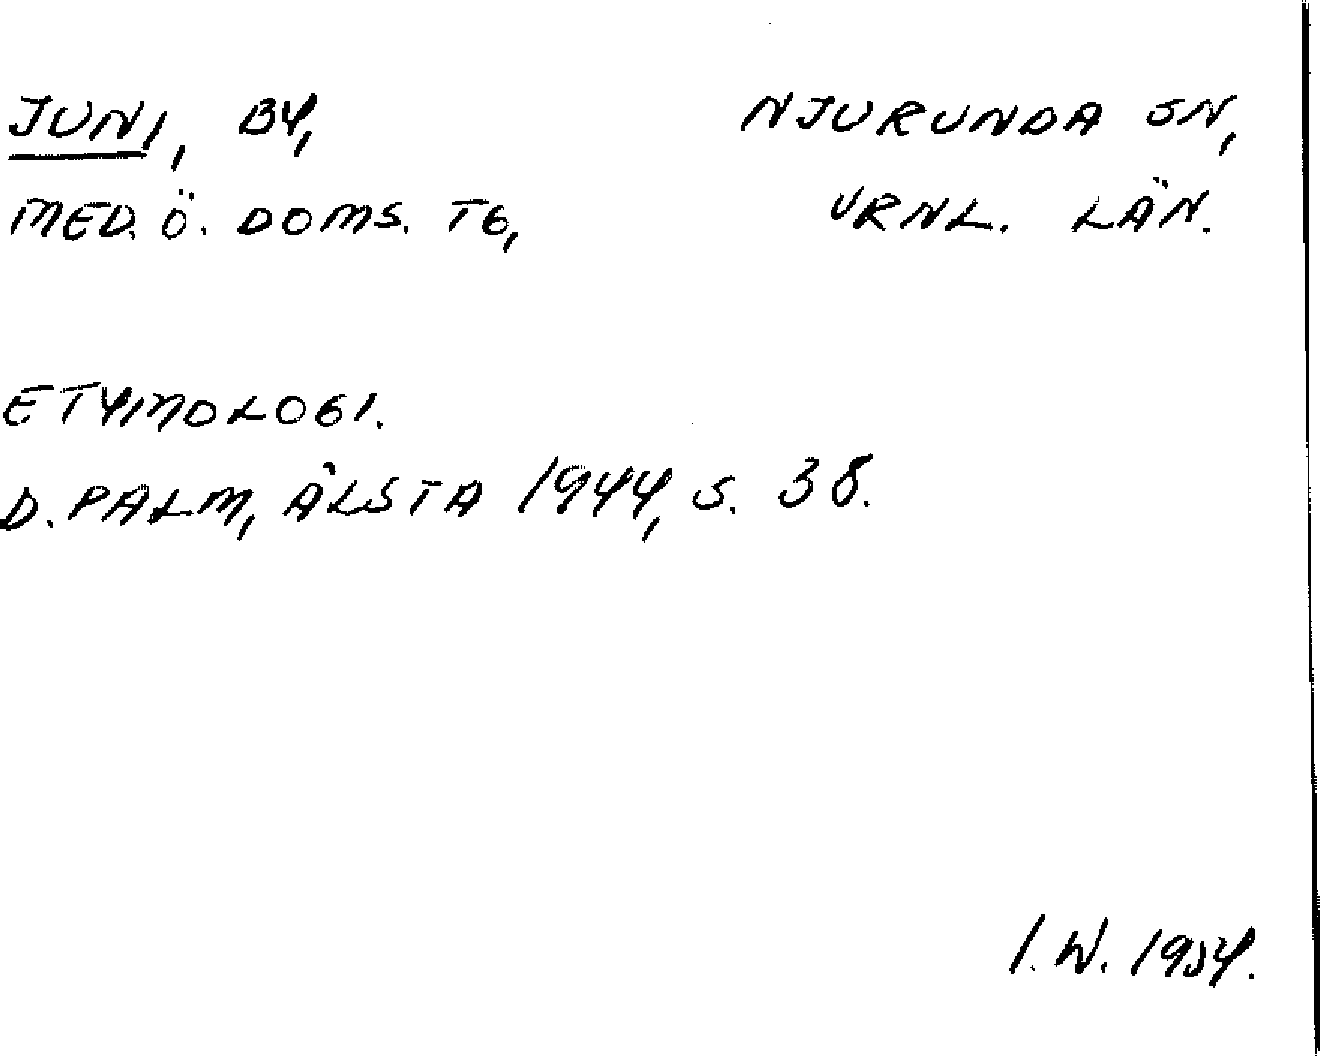 JUNI, BY, NJURUNDA SN,
MED. Ö. DOMS. TG, VRNL. LÄN.
ETYMOLOGI.
D. PALM, ÅLSTA 1944, S. 38.
I. W. 1954.